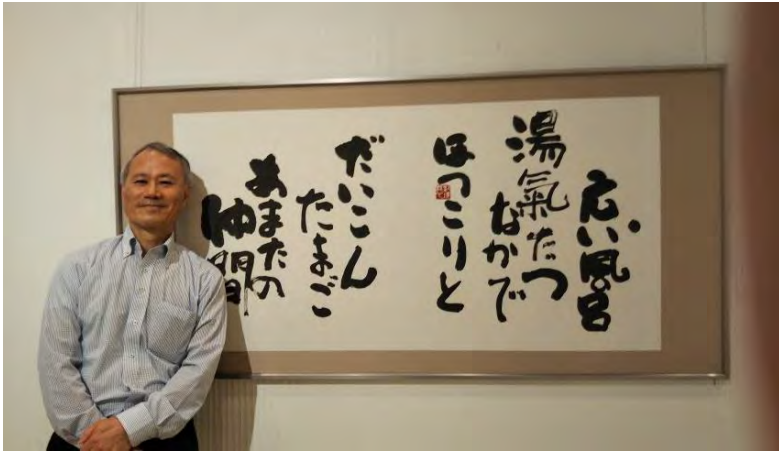 広い風呂
湯氣たつ
なかで
ほっこりと
だいこん
たまご
あまたの
仲間